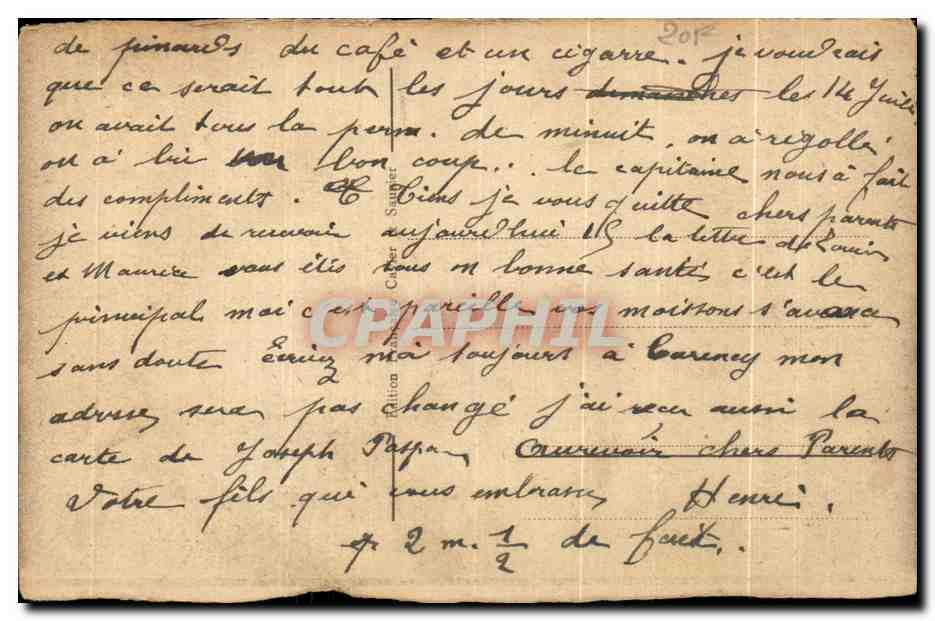 20F
de pinards du café et un cigarre. je voudrais
que ce serait tout les jours les 14 Juillet
on avait tous la perm. de minuit, on a rigollé
on a bu un bon coup.. le capitaine nous a fait
des compliments. Tiens je vous quitte chers parents
je viens de recevoir aujourd'hui 15 la lettre de Louis
et Maurice vous êtes tous en bonne santé c'est le
principal moi c'est pareille vos moissons s'avance
sans doute Écriez moi toujours à Carency mon
adresse sera pas changé j'ai recu aussi la
carte de Joseph Paspa aurevoir chers Parents
Votre fils qui vous embrasse Henri.
2 m. 1/2 de fait.
Edition Cartier Saunier
CPAPHIL